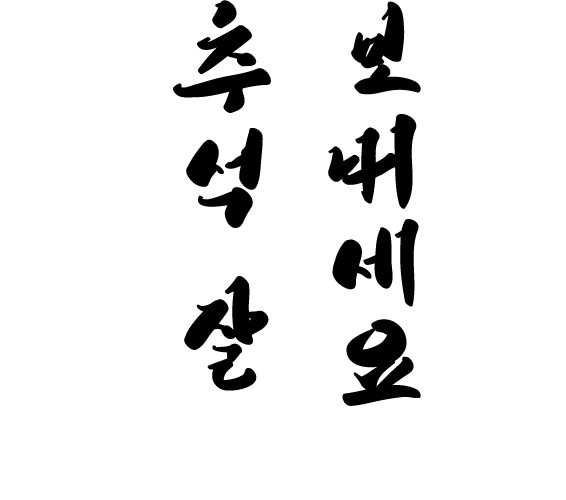 추석 잘
보내세요